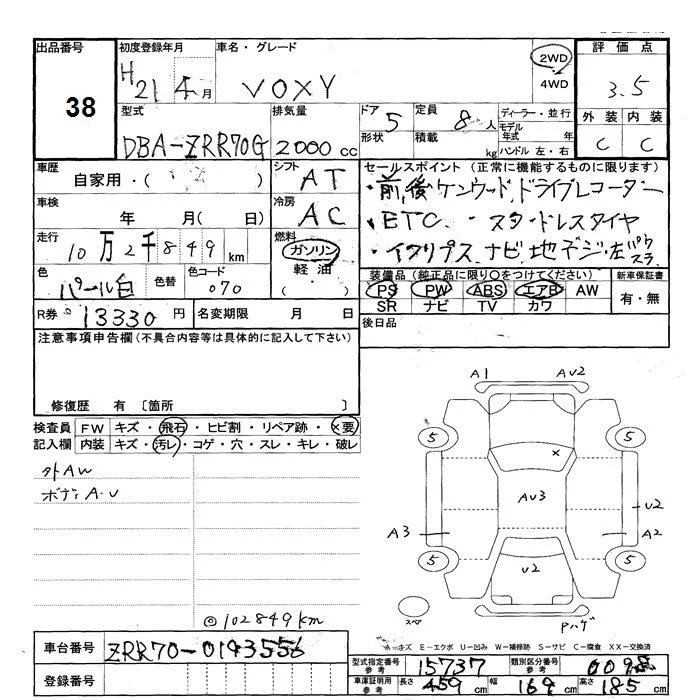 出品番号 初度登録年月 車名・グレード 2WD 評価点
38 H21 4月 VOXY 4WD 3.5
型式 排気量 ドア 5 定員 8人 ディーラー・並行 外装 内装
DBA-ZRR70G 2000cc 形状 積載 kg モデル年式 年 C C
ハンドル 左・右
車歴 自家用・( ) シフト AT セールスポイント (正常に機能するものに限ります)
・前,後ケンウッド,ドライブレコーダー
車検 年 月( 日) 冷房 AC ・ETC. ・スタッドレスタイヤ
走行 10万2千849km 燃料 ガソリン 軽油・( ) ・イクリプス,ナビ,地デジ,左パワスラ
色 パール白 色替 色コード 070 装備品 (純正品に限り○をつけてください) 新車保証書
PS PW ABS エアB AW 有・無
SR ナビ TV カワ
R券 13330円 名変期限 月 日 後日品
注意事項申告欄 (不具合内容等は具体的に記入して下さい)
修復歴 有 〔箇所 〕
検査員 FW キズ・飛石・ヒビ割・リペア跡・×要
記入欄 内装 キズ・汚レ・コゲ・穴・スレ・キレ・破レ
外AW
ボディA.U
◎102849km
A1 AU2
5 5
×
AU3
U2
A3 A2
5 5
U2
スペ
Pハゲ
A-キズ E-エクボ U-凹み W-補修跡 S-サビ C-腐食 XX-交換済
車台番号 ZRR70-0193556
登録番号
型式指定番号 参考 15737 類別区分番号 参考
車庫証明用 参考 長さ 459cm 幅 169cm 高さ 185cm